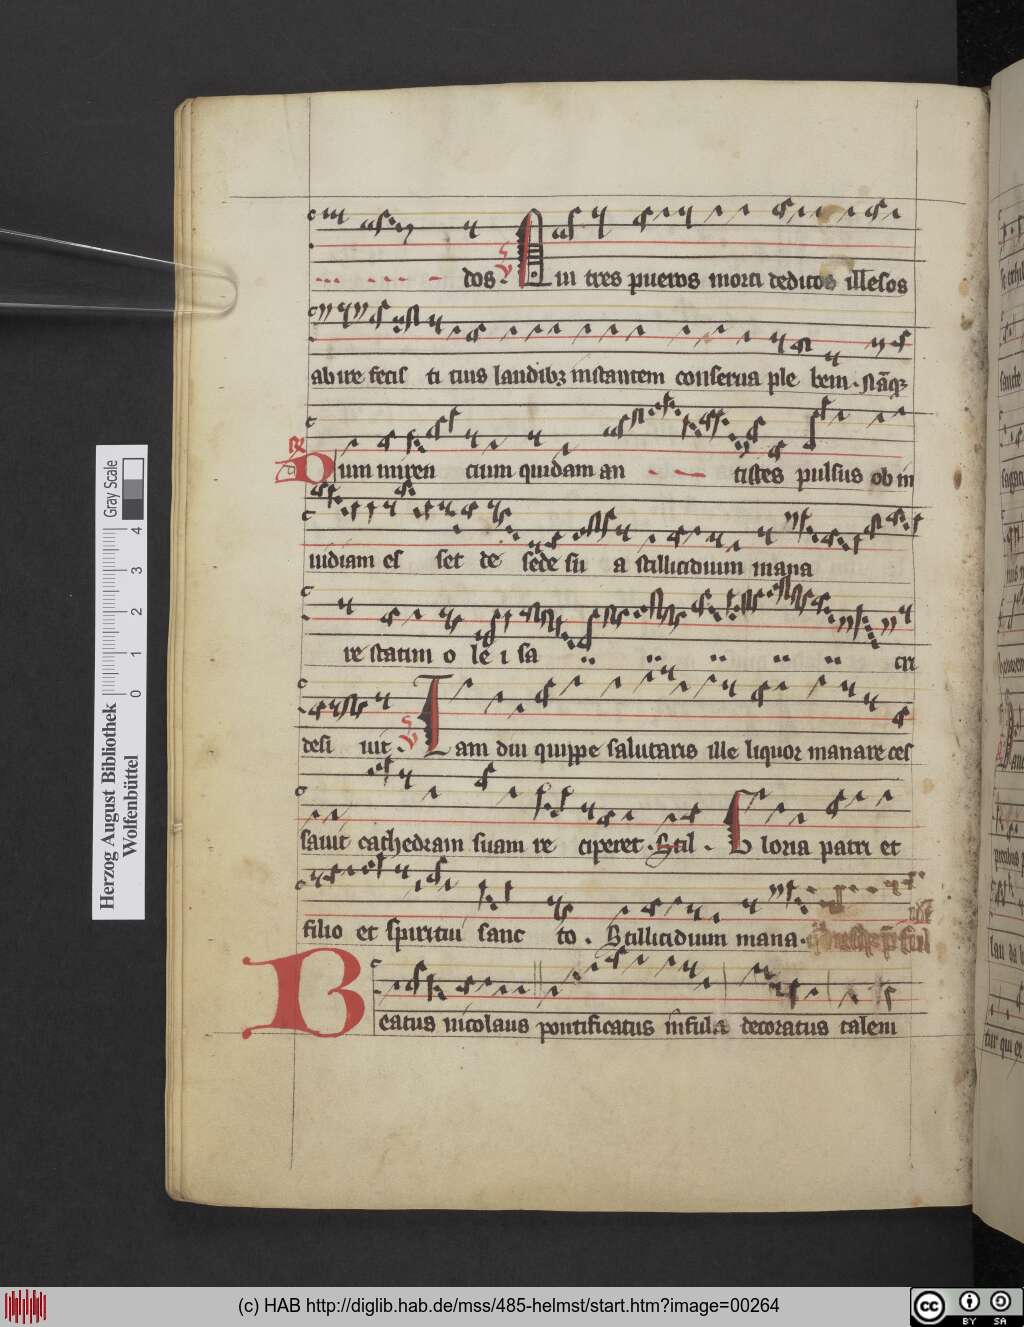 dos . V Qui tres pueros morti deditos illesos
abire fecit ti tius laudibus instantem conserua ple bem .
R Dum inuen tium quidam an tistes pulsus ob in
uidiam es set de sede su a stillicidium mana
re statim o le i sa cri
desi uit . V Iam diu quippe salutaris ille liquor manare ces
sauit cathedram suam re ciperet . Stil . Gloria patri et
filio et spiritui sanc to . Stillicidium mana .
Beatus nicolaus pontificatus infula decoratus talem
Herzog August Bibliothek
Wolfenbüttel
Gray Scale
0 1 2 3 4
(c) HAB http://diglib.hab.de/mss/485-helmst/start.htm?image=00264
cc BY SA